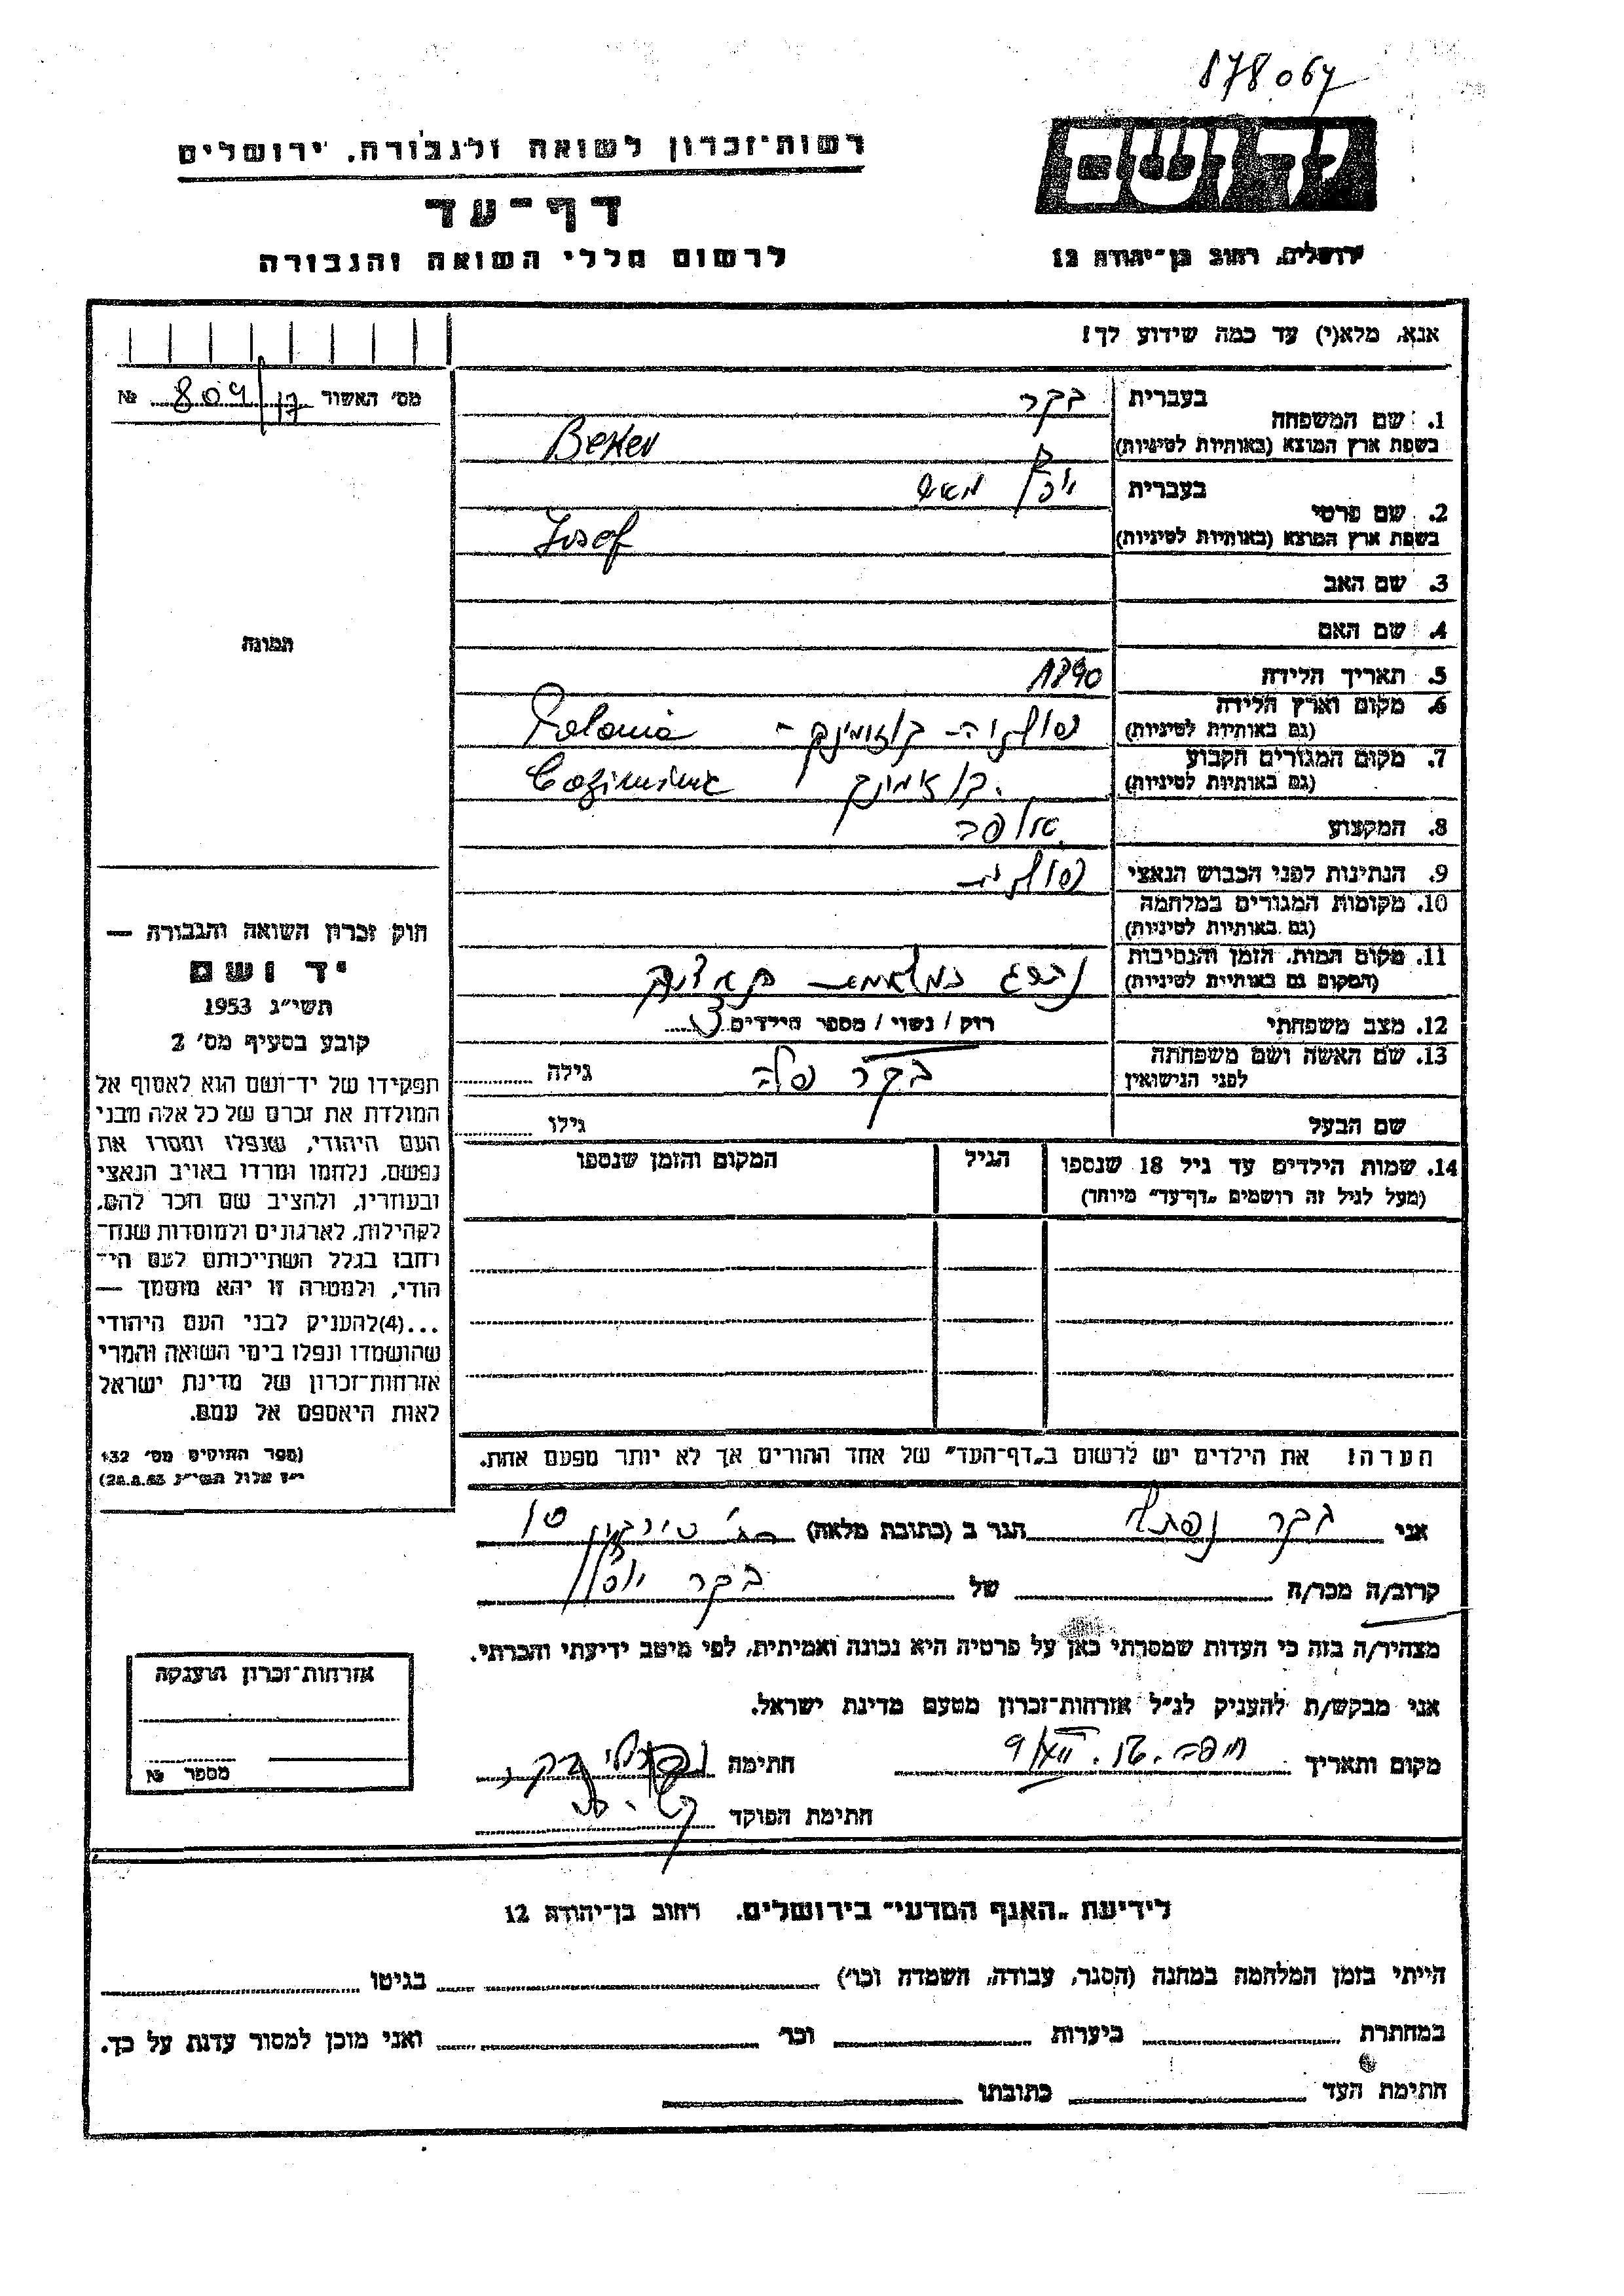 878067
רשות־זכרון לשואה ולגבורה, ירושלים
יד ושם
דף־עד
לרשום חללי השואה והגבורה
ירושלים, רחוב בן־יהודה 12
אנא, מלא(י) עד כמה שידוע לך!
מס' האשור 17/809 №
1. שם המשפחה
בעברית בקר
בשפת ארץ המוצא (באותיות לטיניות) Beker
2. שם פרטי
בעברית
בשפת ארץ המוצא (באותיות לטיניות) Josef
3. שם האב
4. שם האם
5. תאריך הלידה 1890
6. מקום וארץ הלידה
(גם באותיות לטיניות) Polania
7. מקום המגורים הקבוע
(גם באותיות לטיניות)
8. המקצוע
9. הנתינות לפני הכבוש הנאצי
10. מקומות המגורים במלחמה
(גם באותיות לטיניות)
11. מקום המות, הזמן והנסיבות
(המקום גם באותיות לטיניות)
12. מצב משפחתי רוק / נשוי / מספר הילדים 3
13. שם האשה ושם משפחתה
לפני הנישואין בקר גילה
שם הבעל גילו
14. שמות הילדים עד גיל 18 שנספו הגיל המקום והזמן שנספו
(מעל לגיל זה רושמים "דף־עד" מיוחד)
הערה! את הילדים יש לרשום ב"דף־העד" של אחד ההורים אך לא יותר מפעם אחת.
תמונה
חוק זכרון השואה והגבורה —
יד ושם
תשי"ג 1953
קובע בסעיף מס' 2
תפקידו של יד־ושם הוא לאסוף אל
המולדת את זכרם של כל אלה מבני
העם היהודי, שנפלו ומסרו את
נפשם, נלחמו ומרדו באויב הנאצי
ובעוזריו, ולהציב שם וזכר להם,
לקהילות, לארגונים ולמוסדות שנח־
רבו בגלל השתייכותם לעם הי־
הודי, ולמטרה זו יהא מוסמך —
...(4)להעניק לבני העם היהודי
שהושמדו ונפלו בימי השואה והמרי
אזרחות־זכרון של מדינת ישראל
לאות היאספם אל עמם.
(ספר החוקים מס' 132
י"ז אלול תשי"ג 28.8.53)
אני בקר נפתלי הגר ב (כתובת מלאה)
קרוב/ה מכר/ה של בקר יוסף
מצהיר/ה בזה כי העדות שמסרתי כאן על פרטיה היא נכונה ואמיתית, לפי מיטב ידיעתי והכרתי.
אני מבקש/ת להעניק לנ"ל אזרחות־זכרון מטעם מדינת ישראל.
מקום ותאריך חתימה
חתימת הפוקד
אזרחות־זכרון הוענקה
מספר №
לידיעת "האגף המדעי" בירושלים, רחוב בן־יהודה 12
הייתי בזמן המלחמה במחנה (הסגר, עבודה, השמדה וכו') בגיטו
במחתרת ביערות וכו' ואני מוכן למסור עדות על כך.
חתימת העד כתובתו